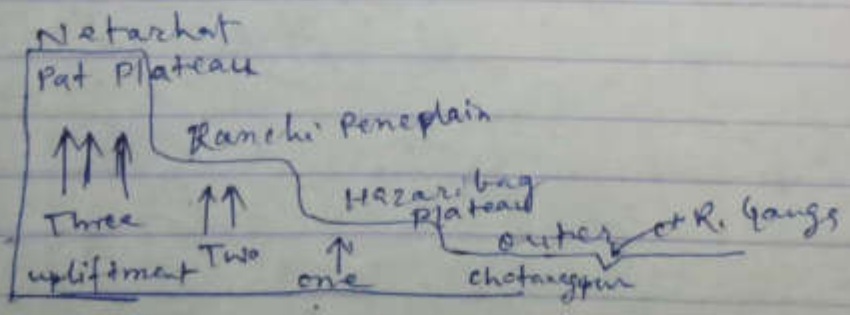 Netarhat
Pat Plateau
Ranchi Peneplain
Hazaribag
Plateau
outer
R. Ganga
Three
Two
one
upliftment
chotanagpur